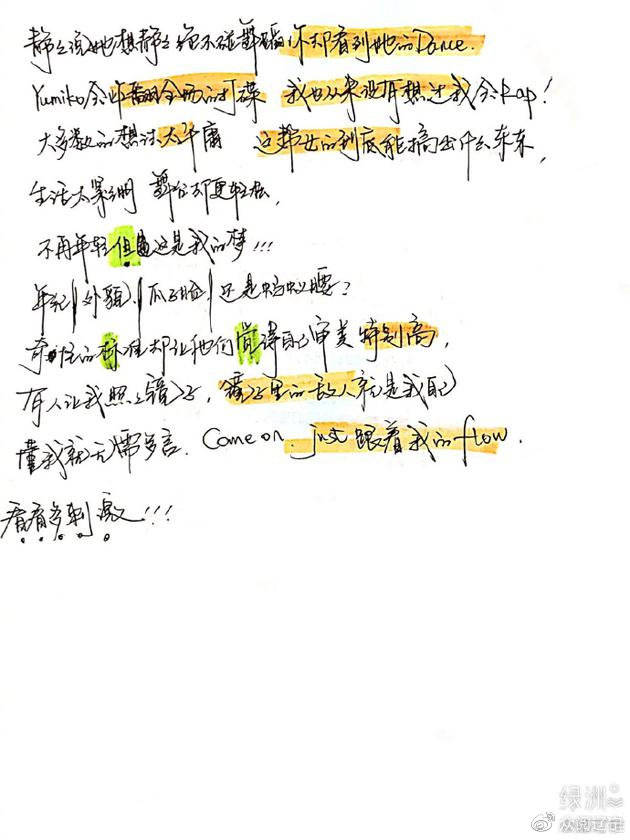 静静说她想静静绝不碰舞蹈你却看到她的Dance.
Yumiko会作翻全场的打碟 我也从来没有想过我会Rap!
大多数的想法太平庸 这帮女的到底能搞出什么东东,
生活太累 舞台却更轻松,
不再年轻但是这是我的梦!!!
年纪|外貌|瓜子脸|还是蚂蚁腰?
奇怪的标准却让他们觉得自己审美特别高,
有人让我照照镜子,镜子里的敌人就是我自己
懂我就无需多言. Come on. just 跟着我的flow.
看看多刺激!!!
绿洲